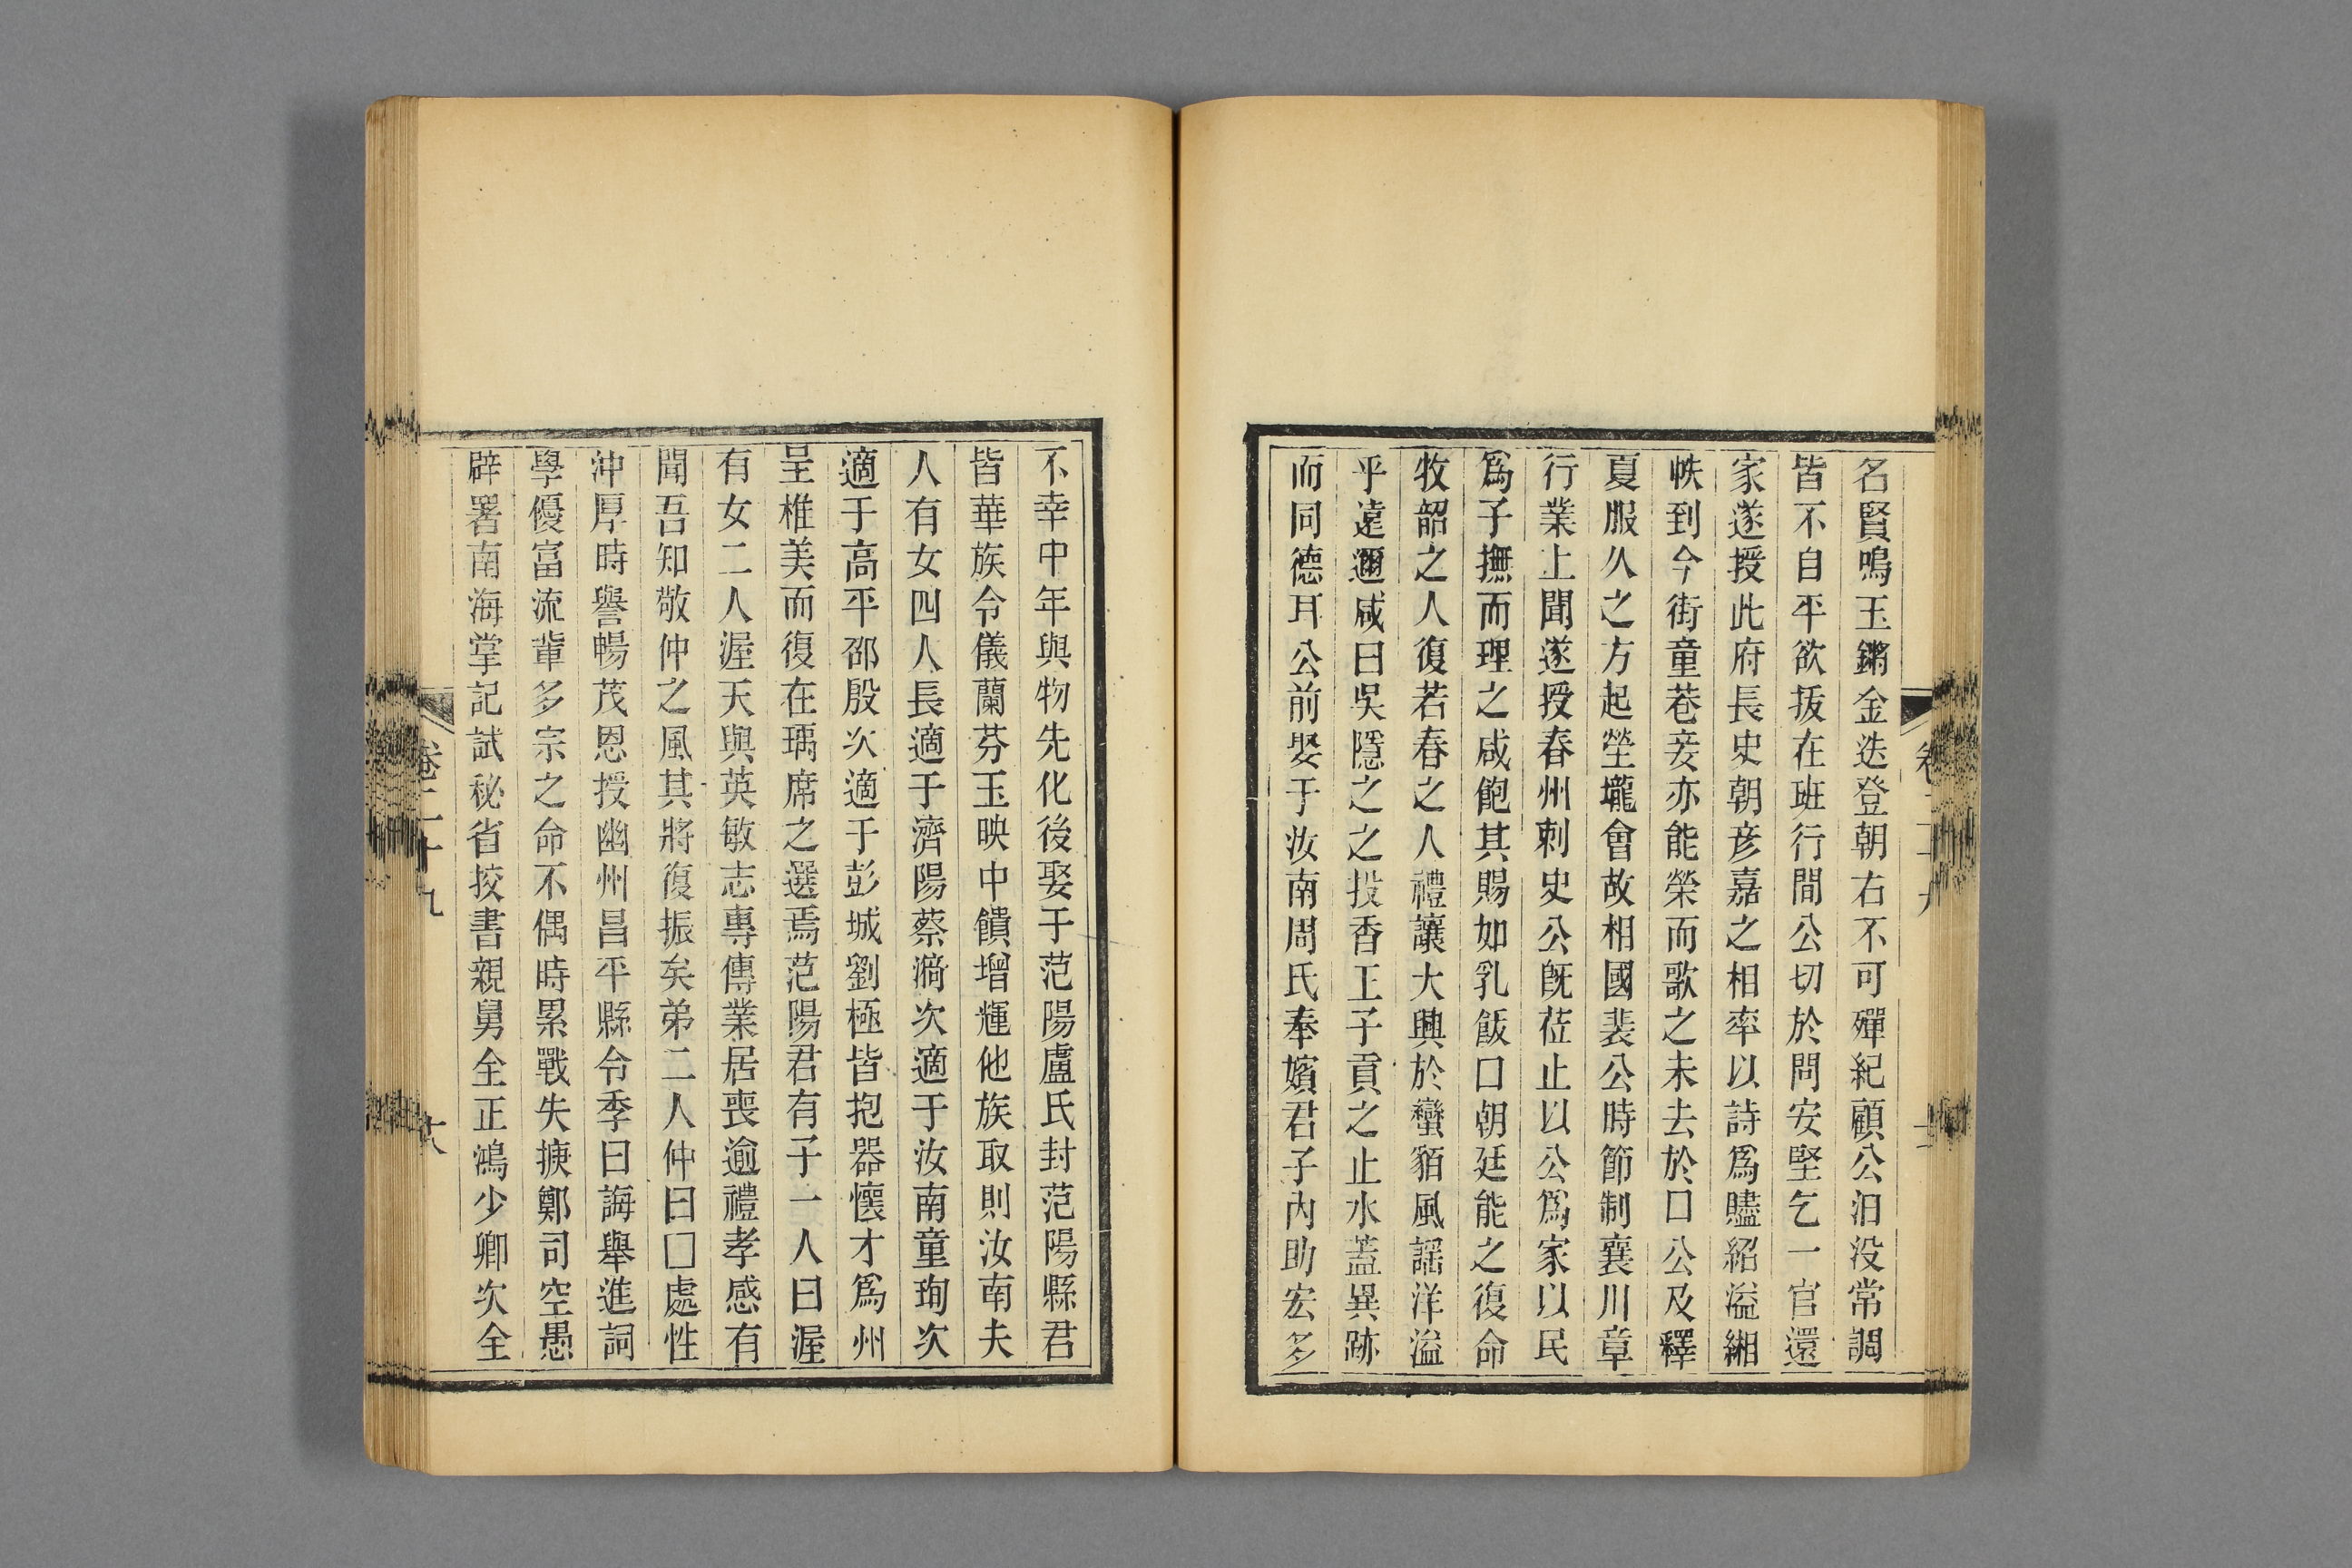 名賢鳴玉鏘金迭登朝右不可殫紀顧公汨没常調
皆不自平欲拔在班行間公切於問安堅乞一官還
家遂授此府長史朝彥嘉之相率以詩爲贐紹溢緗
帙到今街童巷妾亦能榮而歌之未去於口公及釋
夏服久之方起塋壠會故相國裴公時節制襄川章
行業上聞遂授春州刺史公旣莅止以公爲家以民
爲子撫而理之咸飽其賜如乳飯口朝廷能之復命
牧韶之人復若春之人禮讓大興於蠻貊風謡洋溢
乎遠邇咸曰吳隱之之投香王子貢之止水蓋異跡
而同德耳公前娶于汝南周氏奉嬪君子内助宏多
不幸中年與物先化後娶于范陽盧氏封范陽縣君
皆華族令儀蘭芬玉映中饋增輝他族取則汝南夫
人有女四人長適于濟陽蔡漪次適于汝南童珣次
適于高平邵殷次適于彭城劉極皆抱器懷才爲州
呈椎美而復在瑀席之選焉范陽君有子一人曰渥
有女二人渥天與英敏志專傳業居喪逾禮孝感有
聞吾知敬仲之風其將復振矣弟二人仲曰□處性
沖厚時譽暢茂恩授幽州昌平縣令季曰誨舉進詞
學優富流輩多宗之命不偶時累戰失捷鄭司空愚
辟署南海掌記試秘省挍書親舅全正鴻少卿次全
卷二十九